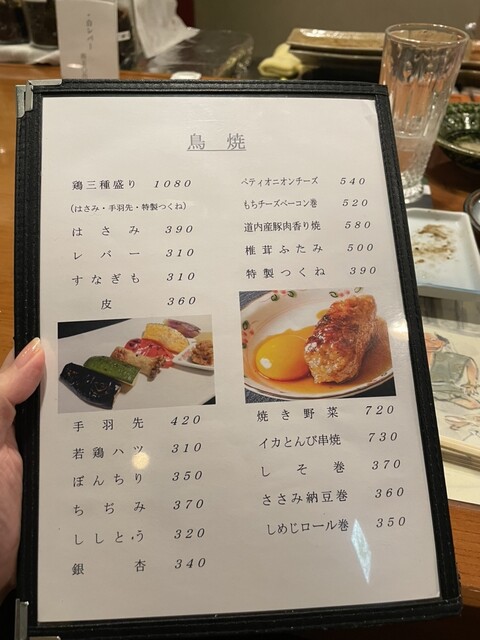 ・白レバー
鳥 焼
鶏三種盛り 1080
(はさみ・手羽先・特製つくね)
はさみ 390
レバー 310
すなぎも 310
皮 360
手羽先 420
若鶏ハツ 310
ぼんちり 350
ちぢみ 370
ししとう 320
銀杏 340
ペティオニオンチーズ 540
もちチーズベーコン巻 520
道内産豚肉香り焼 580
椎茸ふたみ 500
特製つくね 390
焼き野菜 720
イカとんび串焼 730
しそ巻 370
ささみ納豆巻 360
しめじロール巻 350